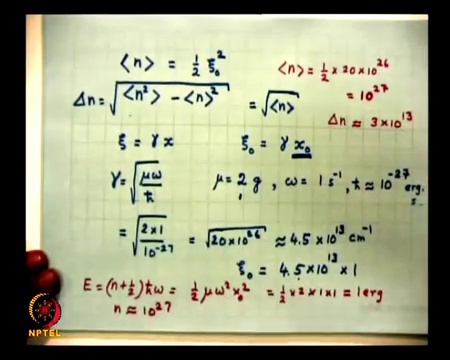 ⟨n⟩ = 1/2 ξ₀²
⟨n⟩ = 1/2 × 20 × 10²⁶
= 10²⁷
Δn = √(⟨n²⟩ − ⟨n⟩²) = √⟨n⟩
Δn ≈ 3 × 10¹³
ξ = γ x
ξ₀ = γ x₀
γ = √(μω/ħ)
μ = 2 g , ω = 1 s⁻¹ , ħ ≈ 10⁻²⁷ erg. s
= √(2 × 1/10⁻²⁷) = √(20 × 10²⁶) ≈ 4.5 × 10¹³ cm⁻¹
ξ₀ = 4.5 × 10¹³ × 1
E = (n + 1/2) ħω = 1/2 μω² x₀² = 1/2 × 2 × 1 × 1 = 1 erg
n ≈ 10²⁷
NPTEL